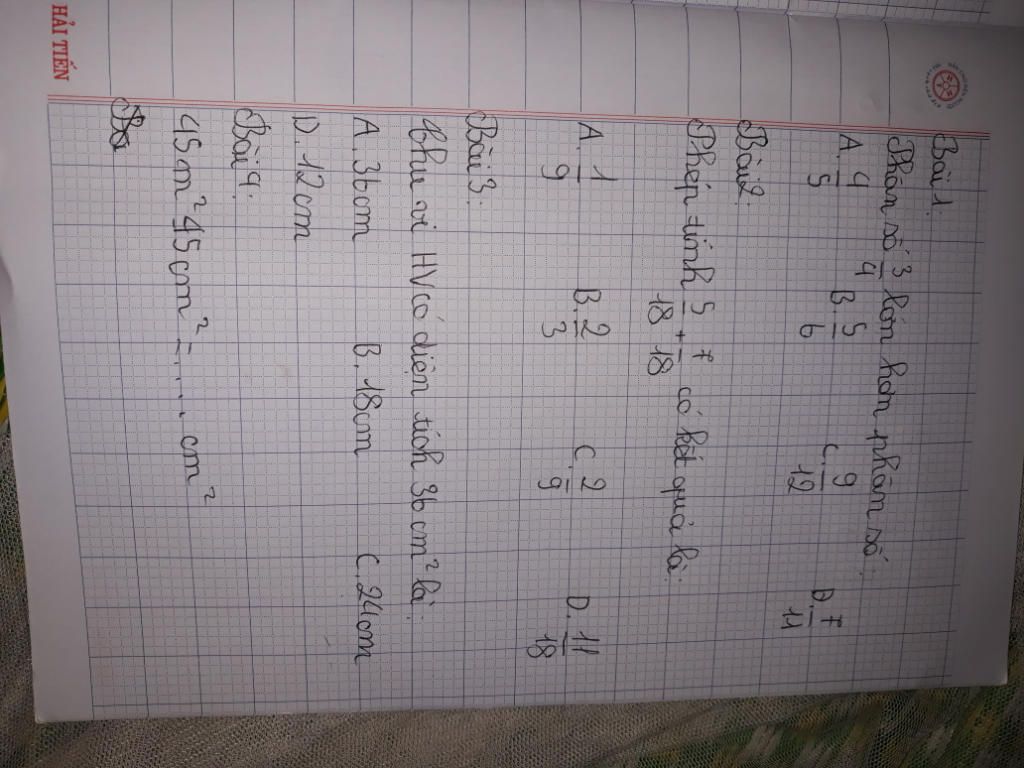 HẢI TIẾN
Bài 1:
Phân số 3/4 lớn hơn phân số:
A. 4/5 B. 5/6 C. 9/12 D. 7/11
Bài 2:
Phép tính 5/18 + 7/18 có kết quả là:
A. 1/9 B. 2/3 C. 2/9 D. 11/18
Bài 3:
Chu vi HV có diện tích 36 cm² là:
A. 36cm B. 18cm C. 24cm
D. 12cm
Bài 4:
45m² 45cm² = ..... cm²